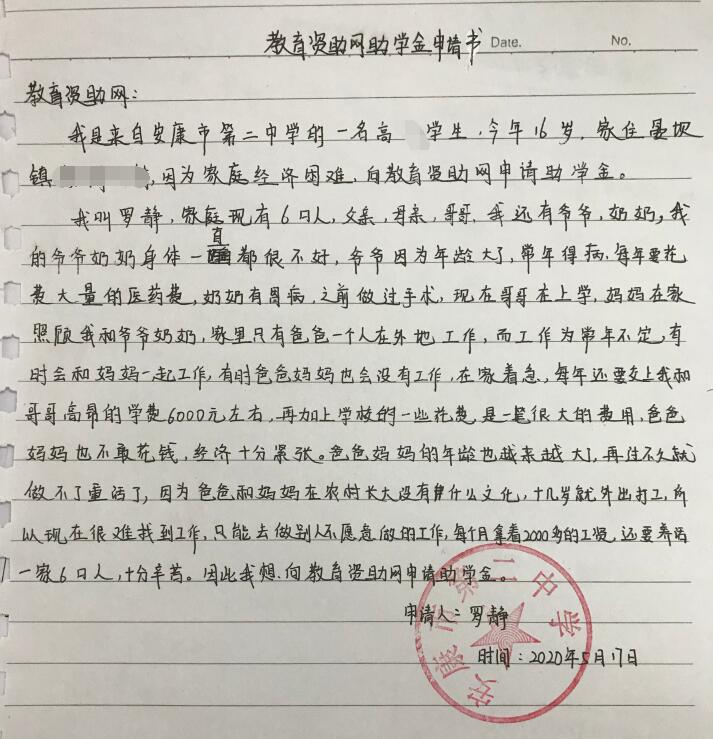 教育资助网助学金申请书 Date. No.
教育资助网:
我是来自安康市第二中学的一名高 学生,今年16岁,家住晏坝
镇 ,因为家庭经济困难,向教育资助网申请助学金。
我叫罗静,家庭现有6口人,父亲,母亲,哥哥,我还有爷爷,奶奶,我
的爷爷奶奶身体一直都很不好,爷爷因为年龄大了,常年得病,每年要花
费大量的医药费,奶奶有胃病,之前做过手术,现在哥哥在上学,妈妈在家
照顾我和爷爷奶奶,家里只有爸爸一个人在外地工作,而工作为常年不定,有
时会和妈妈一起工作,有时爸爸妈妈也会没有工作,在家着急,每年还要交上我和
哥哥高昂的学费6000元左右,再加上学校的一些花费,是一笔很大的费用,爸爸
妈妈也不敢花钱,经济十分紧张。爸爸妈妈的年龄也越来越大了,再过不久就
做不了重活了,因为爸爸和妈妈在农村长大没有什么文化,十几岁就外出打工,所
以现在很难找到工作,只能去做别人不愿意做的工作,每个月拿着2000多的工资,还要养活
一家6口人,十分辛苦。因此我想向教育资助网申请助学金。
申请人:罗静
时间:2020年5月17日
安康市第二中学